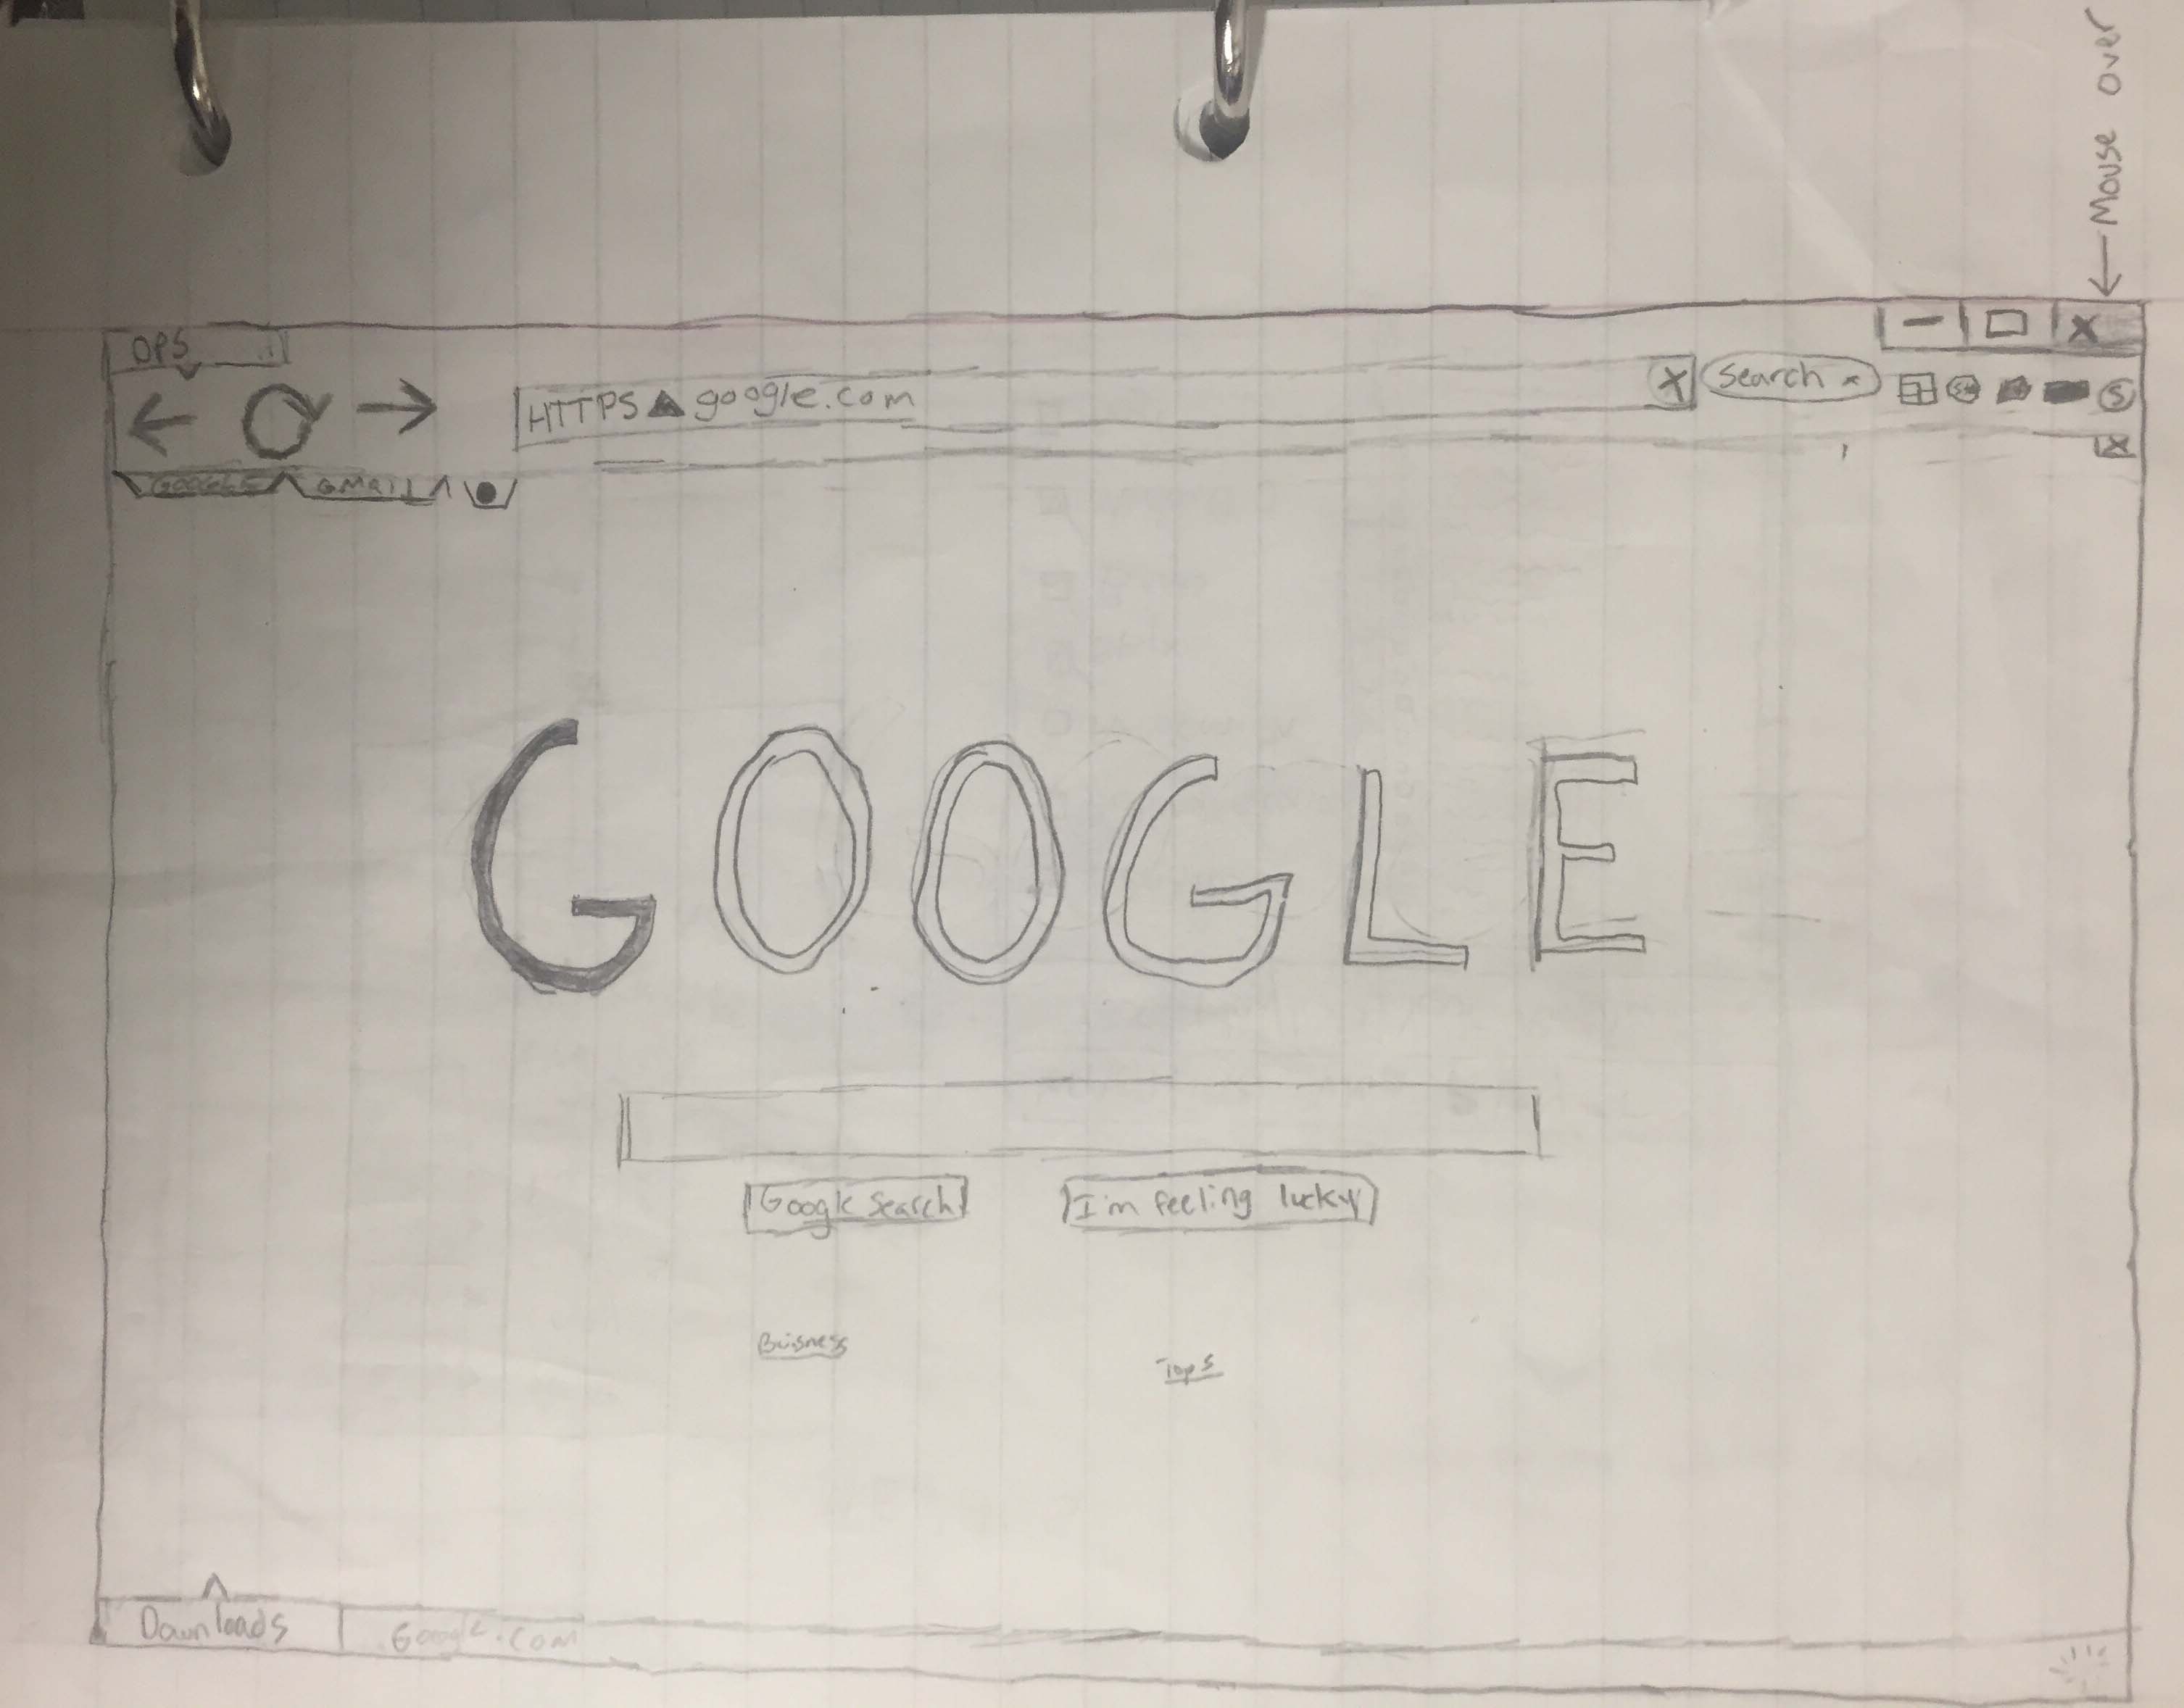 ← Mouse over
OPS
X
HTTPS google.com X Search x
S
X
GOOGLE GMAIL
GOOGLE
Google Search I'm feeling lucky
Buisness
Tops
Downloads Google.com